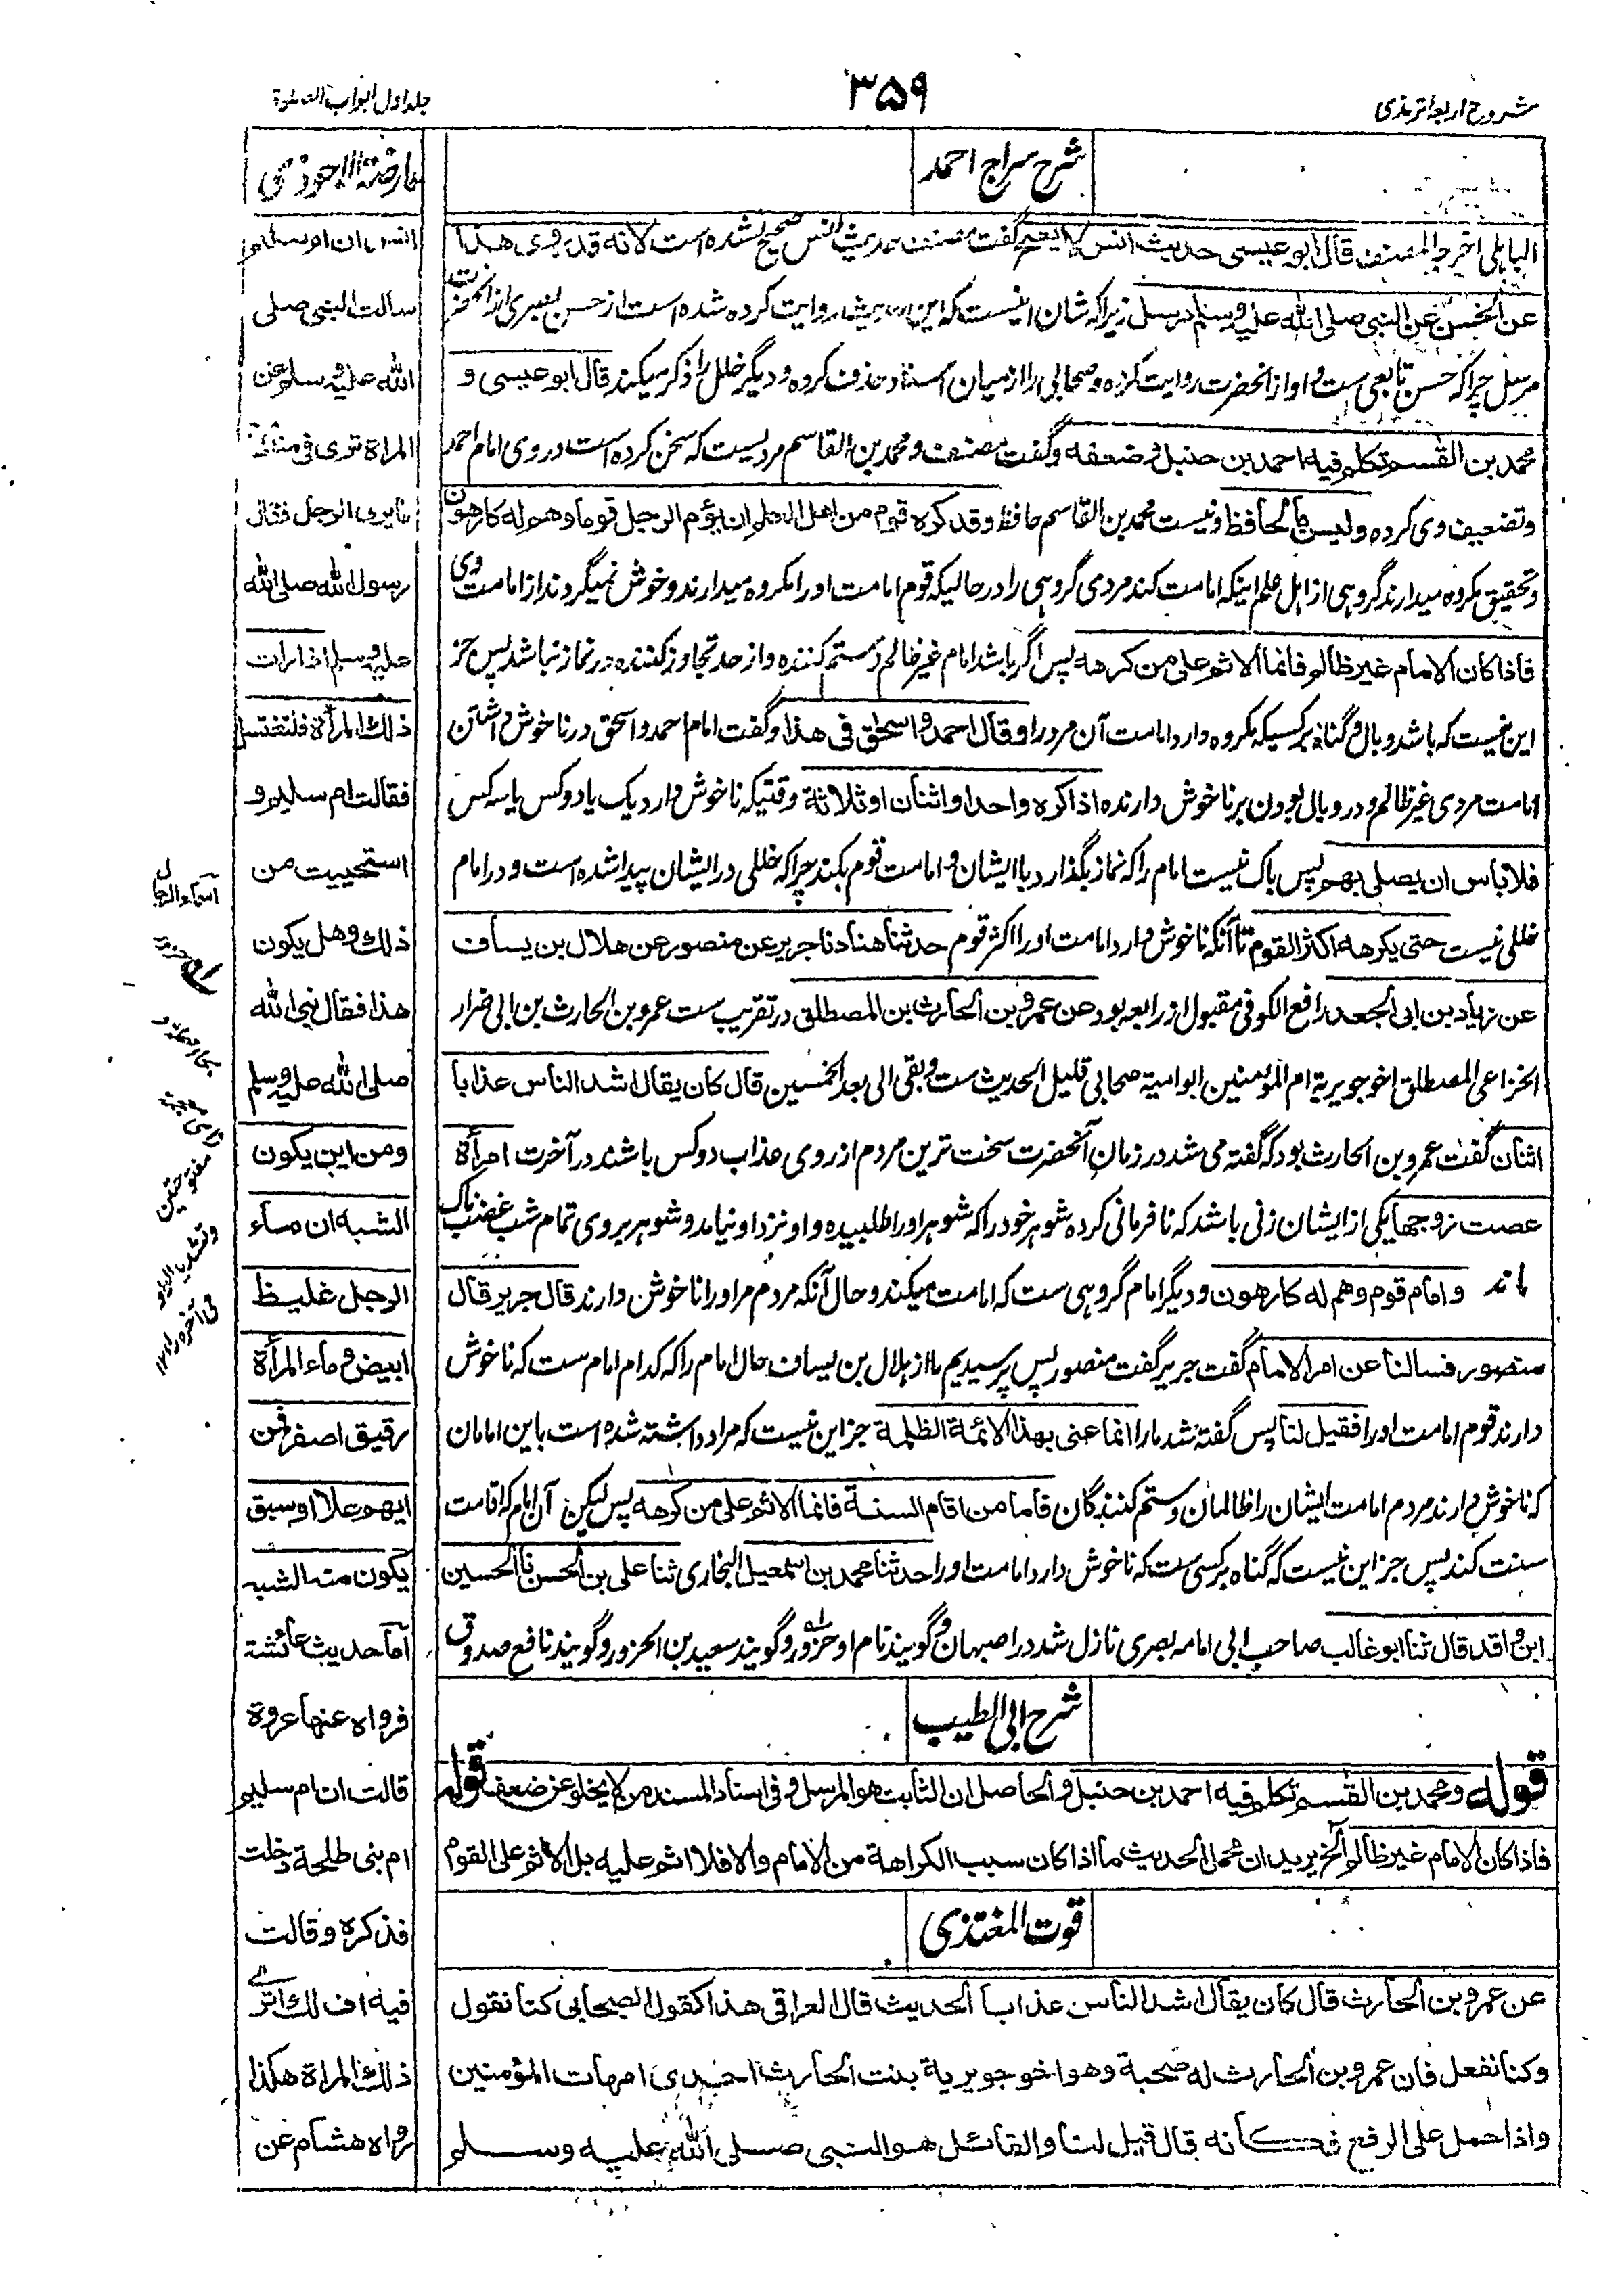 شروح اربعہ ترمذی
۳۵۹
جلد اول ابواب الصلوة
شرح سراج احمد
الباہلی اخرجہ المصنف قال ابو عیسی حدیث انس لا یصح گفت مصنف حدیث انس صحیح نشدہ است لانہ قد روی ھذا
عن الحسن عن النبی صلی اللہ علیہ وسلم مرسل زیراکہ شان اینست کہ این حدیث روایت کردہ شدہ است از حسن بصری از آنحضرت
مرسل چراکہ حسن تابعی ست و او از آنحضرت روایت کردہ و صحابی را از میان اسناد حذف کردہ و دیگر خلل را ذکر میکند قال ابو عیسی و
محمد بن القسم تکلم فیہ احمد بن حنبل و ضعفہ و گفت مصنف و محمد بن القاسم مردیست کہ سخن کردہ است در وی امام احمد
و تضعیف وی کردہ و لیس بالحافظ و نیست محمد بن القاسم حافظ و قد کرہ قوم من اھل العلم ان یؤم الرجل قوما و ھم لہ کارھون
و تحقیق مکروہ میدارند گروہی از اہل علم اینکہ امامت کند مردی گروہی را در حالیکہ قوم امامت او را مکروہ میدارند و خوش نمیگردند از امامت وی
فاذا کان الامام غیر ظالم فانما الاثم علی من کرھہ پس اگر باشد امام غیر ظالم و ستم کنندہ و از حد تجاوز کنندہ در نماز نباشد پس جز
این نیست کہ باشد وبال و گناہ بر کسیکہ مکروہ دارد امامت آن مرد را و قال احمد و اسحاق فی ھذا و گفت امام احمد و اسحق در ناخوش داشتن
امامت مردی غیر ظالم و در وبال بودن بر ناخوش دارندہ اذا کرہ واحد او اثنان او ثلاثة وقتیکہ ناخوش دارد یک یا دو کس یا سہ کس
فلا باس ان یصلی بھم پس باک نیست امام را کہ نماز بگذارد با ایشان و امامت قوم بکند چراکہ خللی در ایشان پیدا شدہ است و در امام
خللی نیست حتی یکرھہ اکثر القوم تا آنکہ ناخوش دارد امامت او را اکثر قوم حدثنا ھناد نا جریر عن منصور عن ھلال بن یساف
عن زیاد بن ابی الجعد رافع الکوفی مقبول از رابعہ بود عن عمرو بن الحارث بن المصطلق در تقریب ست عمرو بن الحارث بن ابی ضرار
الخزاعی المصطلق اخو جویریة ام المؤمنین ابو امیة صحابی قلیل الحدیث ست و بقی الی بعد الخمسین قال کان یقال اشد الناس عذابا
اثنان گفت عمرو بن الحارث بود کہ گفتہ می شد در زمان آنحضرت سخت ترین مردم از روی عذاب دو کس باشند در آخرت امرأة
عصت زوجھا یکی از ایشان زنی باشد کہ نافرمانی کردہ شوہر خود را کہ شوہر او را طلبیدہ و او نزد او نیامد و شوہر بر وی تمام شب غضبناک
ماند و امام قوم و ھم لہ کارھون و دیگر امام گروہی ست کہ امامت میکند و حال آنکہ مردم مر او را ناخوش دارند قال جریر قال
منصور فسالنا عن امر الامام گفت جریر گفت منصور پس پرسیدیم ما از ہلال بن یساف حال امام را کہ کدام امام ست کہ ناخوش
دارند قوم امامت او را فقیل لنا پس گفتہ شد ما را انما عنی بھذا الائمة الظلمة جز این نیست کہ مراد داشتہ شدہ است باین امامان
کہ ناخوش دارند مردم امامت ایشان را ظالمان و ستم کنندگان فاما من اقام السنة فانما الاثم علی من کرھہ پس لیکن آن امام کہ اقامت
سنت کند پس جز این نیست کہ گناہ بر کسی ست کہ ناخوش دارد امامت او را حدثنا محمد بن اسمعیل البخاری ثنا علی بن الحسن نا الحسین
ابن واقد قال ثنا ابو غالب صاحب ابی امامہ بصری نازل شد در اصبہان و گویند نام او حزور و گویند سعید بن الحزور و گویند نافع صدوق
شرح ابی الطیب
قولہ و محمد بن القسم تکلم فیہ احمد بن حنبل و الحاصل ان الثابت ھو المرسل و فی اسناد المسند من لا یخلو عن ضعف قولہ
فاذا کان الامام غیر ظالم الخ یرید ان محمل الحدیث ما اذا کان سبب الکراھة من الامام و الا فلا اثم علیہ بل الاثم علی القوم
قوت المغتذی
عن عمرو بن الحارث قال کان یقال اشد الناس عذابا الحدیث قال العراقی ھذا کقول الصحابی کنا نقول
وکنا نفعل فان عمرو بن الحارث لہ صحبة وھو اخو جویریة بنت الحارث احدی امھات المؤمنین
واذا حمل علی الرفع فکانہ قال قیل لنا والقائل ھو النبی صلی اللہ علیہ وسلم
عارضة الاحوذی
انس ان ام سلیم
سالت النبی صلی
اللہ علیہ وسلم عن
المراة تری فی منامھا
ما یری الرجل فقال
رسول اللہ صلی اللہ
علیہ وسلم اذا رات
ذلك المرأة فلتغتسل
فقالت ام سلیم و
استحییت من
ذلك وھل یکون
ھذا فقال نبی اللہ
صلی اللہ علیہ وسلم
ومن این یکون
الشبہ ان ماء
الرجل غلیظ
ابیض و ماء المرأة
رقیق اصفر فمن
ایھم علا او سبق
یکون منہ الشبہ
اما حدیث عائشة
فرواہ عنھا عروة
قالت ان ام سلیم
ام بنی طلحة دخلت
فذکرہ وقالت
فیہ اف لك اتری
ذلك المراة ھکذا
رواہ ھشام عن
اسماء الرجال
مفتوحتین
وتشدید الواو
فی آخرہ راء ۱۲